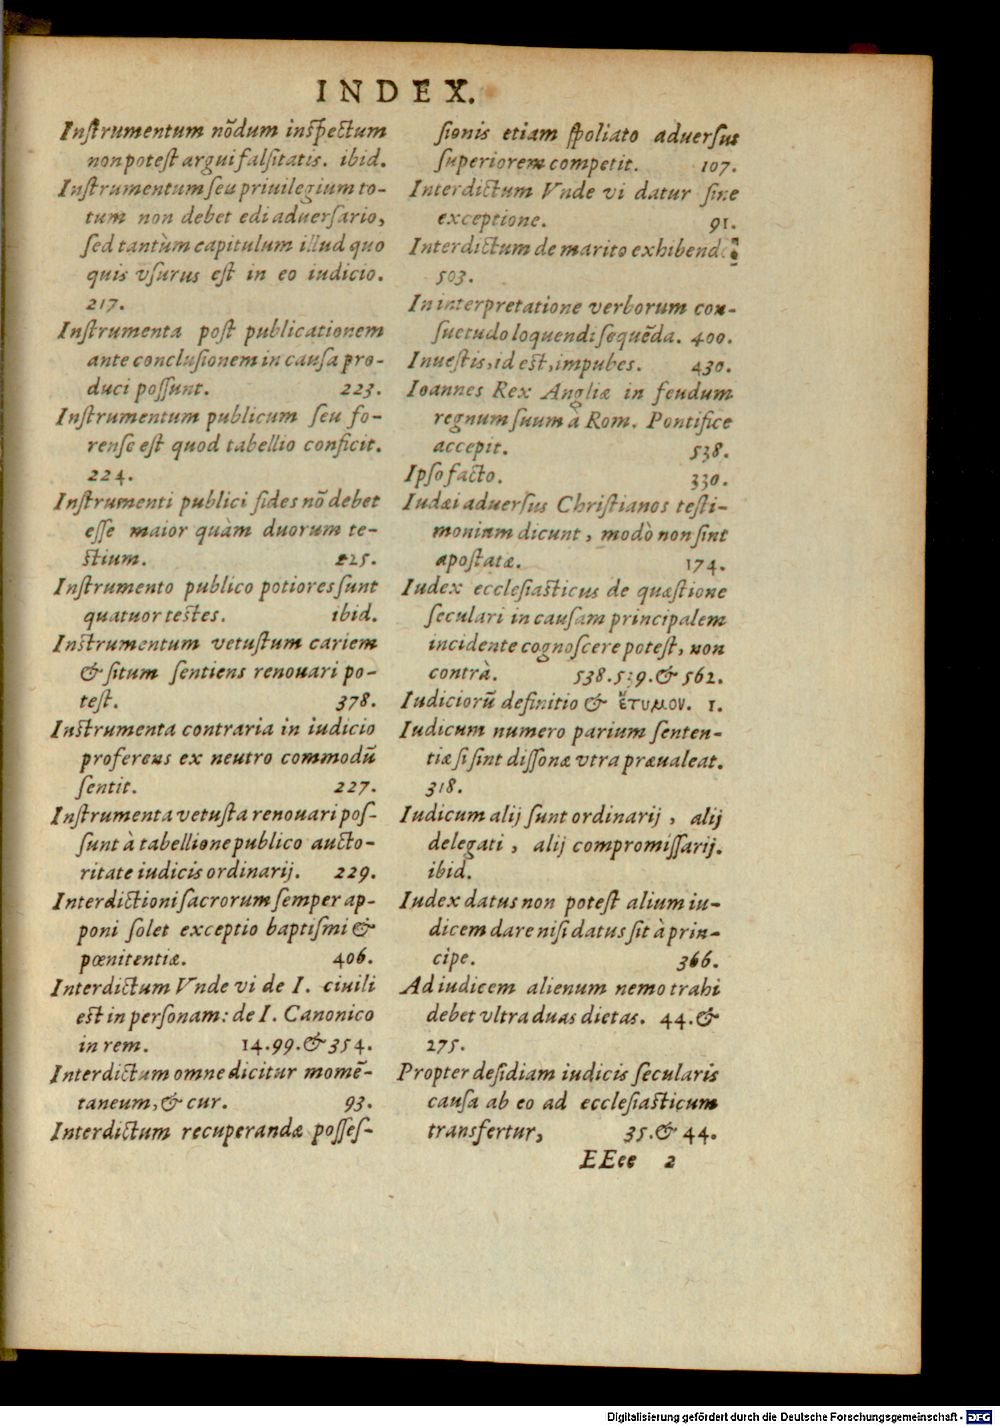 INDEX.
Instrumentum nõdum inspectum
non potest argui falsitatis. ibid.
Instrumentum seu priuilegium to-
tum non debet edi aduersario,
sed tantùm capitulum illud quo
quis vsurus est in eo iudicio.
217.
Instrumenta post publicationem
ante conclusionem in causa pro-
duci possunt. 223.
Instrumentum publicum seu fo-
rense est quod tabellio conficit.
224.
Instrumenti publici fides nõ debet
esse maior quàm duorum te-
stium. 225.
Instrumento publico potiores sunt
quatuor testes. ibid.
Instrumentum vetustum cariem
& situm sentiens renouari po-
test. 378.
Instrumenta contraria in iudicio
proferens ex neutro commodũ
sentit. 227.
Instrumenta vetusta renouari pos-
sunt à tabellione publico aucto-
ritate iudicis ordinarij. 229.
Interdictioni sacrorum semper ap-
poni solet exceptio baptismi &
pœnitentiæ. 406.
Interdictum Vnde vi de I. ciuili
est in personam: de I. Canonico
in rem. 14.99.& 354.
Interdictum omne dicitur momẽ-
taneum, & cur. 93.
Interdictum recuperandæ posses-
sionis etiam spoliato aduersus
superiorem competit. 107.
Interdictum Vnde vi datur sine
exceptione. 91.
Interdictum de marito exhibendo
503.
In interpretatione verborum con-
suetudo loquendi sequẽda. 400.
Inuestis, id est, impubes. 430.
Ioannes Rex Angliæ in feudum
regnum suum à Rom. Pontifice
accepit. 538.
Ipso facto. 330.
Iudæi aduersus Christianos testi-
monium dicunt, modò non sint
apostatæ. 174.
Iudex ecclesiasticus de quæstione
seculari in causam principalem
incidente cognoscere potest, non
contrà. 538.539.& 562.
Iudiciorũ definitio & ἔτυμον. 1.
Iudicum numero parium senten-
tiæ si sint dissonæ vtra præualeat.
318.
Iudicum alij sunt ordinarij, alij
delegati, alij compromissarij.
ibid.
Iudex datus non potest alium iu-
dicem dare nisi datus sit à prin-
cipe. 366.
Ad iudicem alienum nemo trahi
debet vltra duas dietas. 44.&
275.
Propter desidiam iudicis secularis
causa ab eo ad ecclesiasticum
transfertur, 35.& 44.
EEee 2
Digitalisierung gefördert durch die Deutsche Forschungsgemeinschaft - DFG